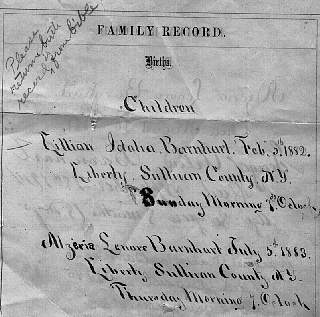 Please
return birth
record from bible
FAMILY RECORD.
Births.
Children
Lillian Idaho Barnhart. Feb. 5th 1882.
Liberty Sullivan County N.Y.
Sunday Morning 7th Oclock,
Alzeria Lenore Barnhart July 5th 1883.
Liberty Sullivan County N.Y.
Thursday Morning 7. Oclock